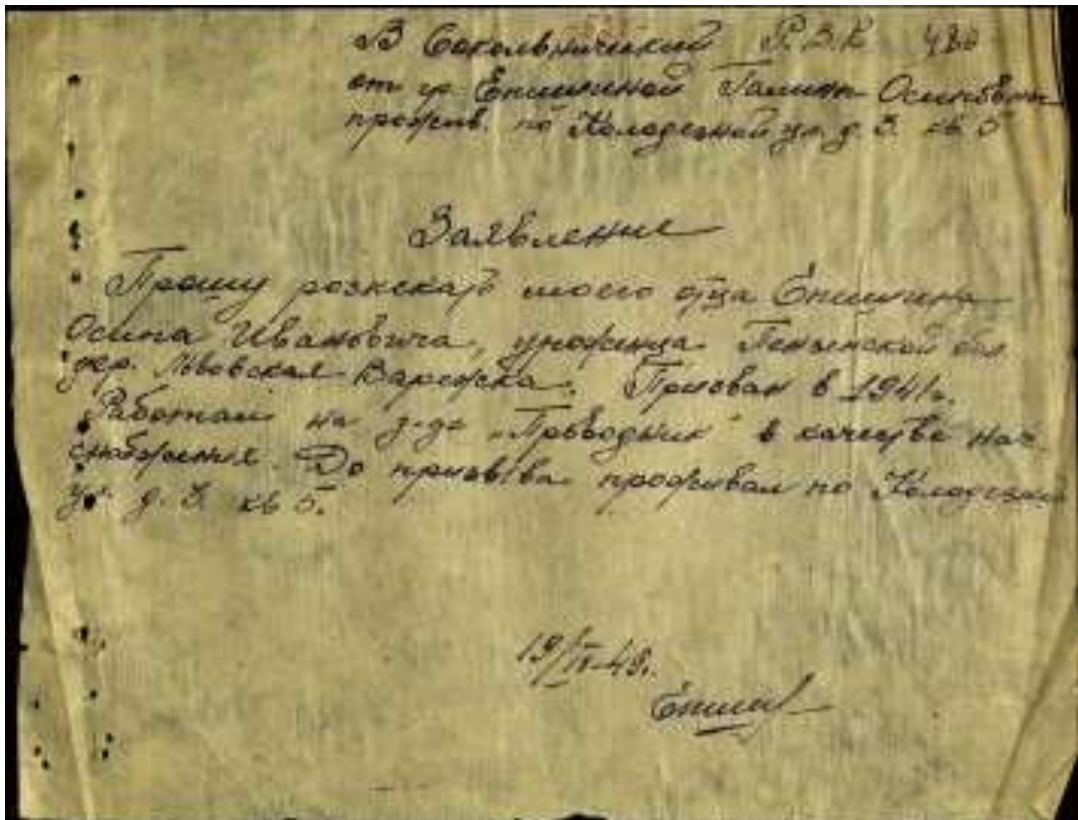 В Сокольнический Р.В.К
от гр. Епишкиной Галины Осиповны
прожив. по Колодезной ул. д. 3. кв 5
Заявление
Прошу розыскать моего отца Епишкина
Осипа Ивановича, уроженца Пензенской обл
дер. Львовская Варежка. Призван в 1941г.
Работал на з-де "Проводник" в качестве нач.
снабжения. До призыва проживал по Колодезной
ул. д. 3. кв 5.
19/IV-48.